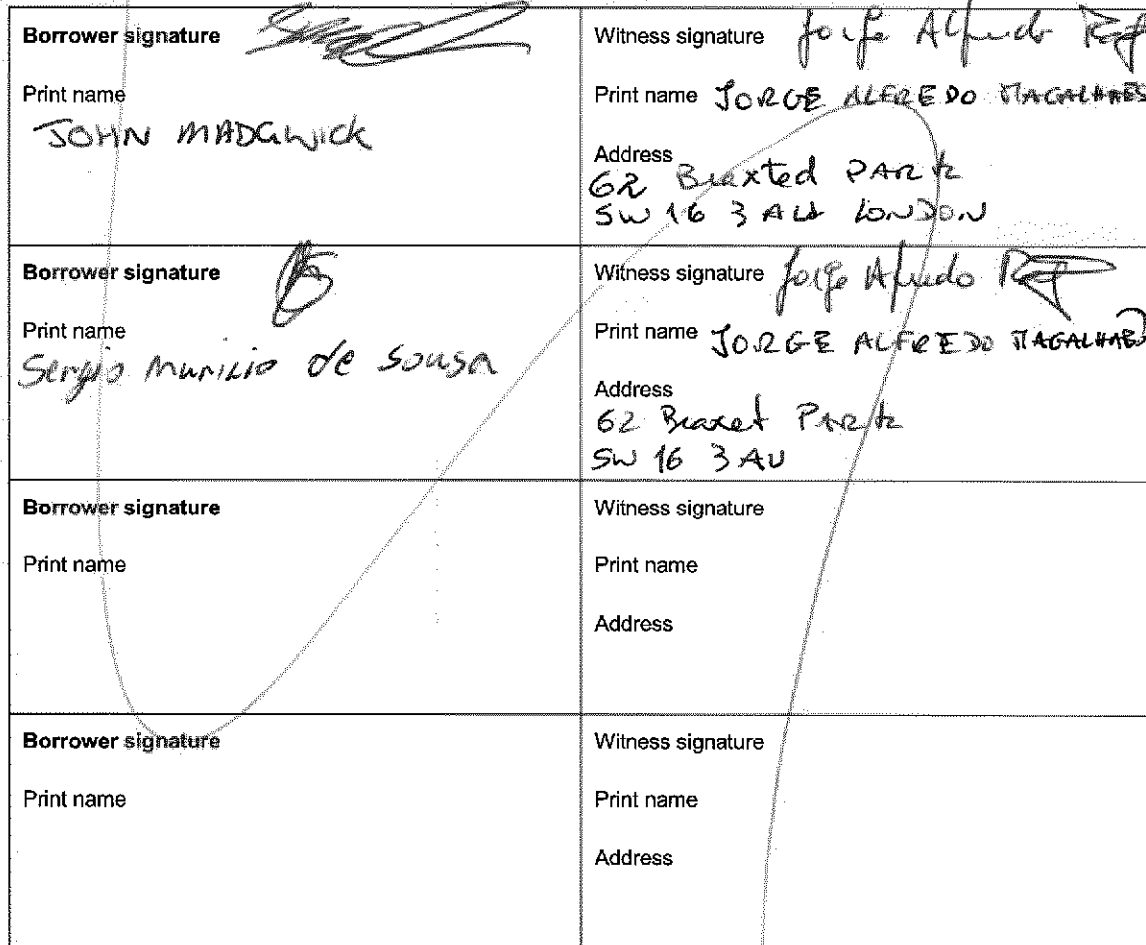 Borrower signature
Print name
JOHN MADGWICK
Witness signature Jorge Alfredo
Print name JORGE ALFREDO MAGALHAES
Address
62 Braxted PARK
SW 16 3 AU LONDON
Borrower signature
Print name
Sergio Muricio de Sousa
Witness signature Jorge Alfredo
Print name JORGE ALFREDO MAGALHAES
Address
62 Braxet PARK
SW 16 3 AU
Borrower signature
Print name
Witness signature
Print name
Address
Borrower signature
Print name
Witness signature
Print name
Address